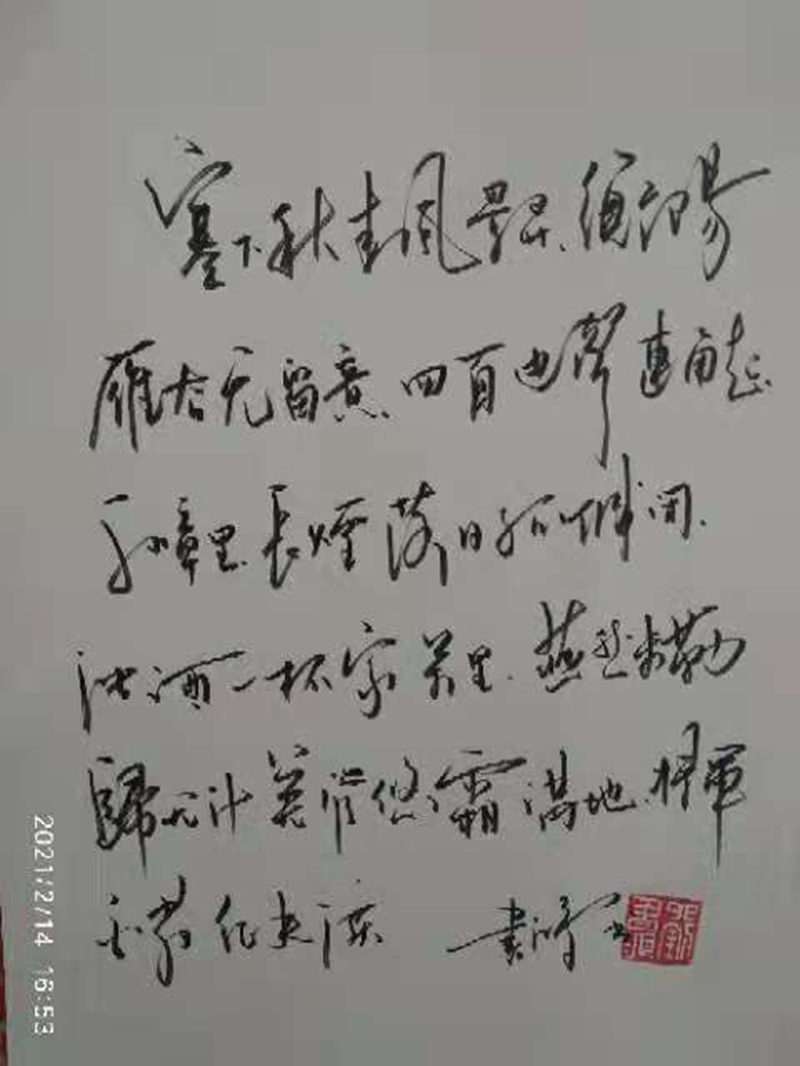 塞下秋来風景異.衡陽
雁去无留意.四面边聲連角起.
千嶂里.長煙落日孤城闭.
浊酒一杯家万里.燕然未勒
歸无计羌管悠悠霜满地.将軍
白髮征夫泪
2021/2/14 16:53